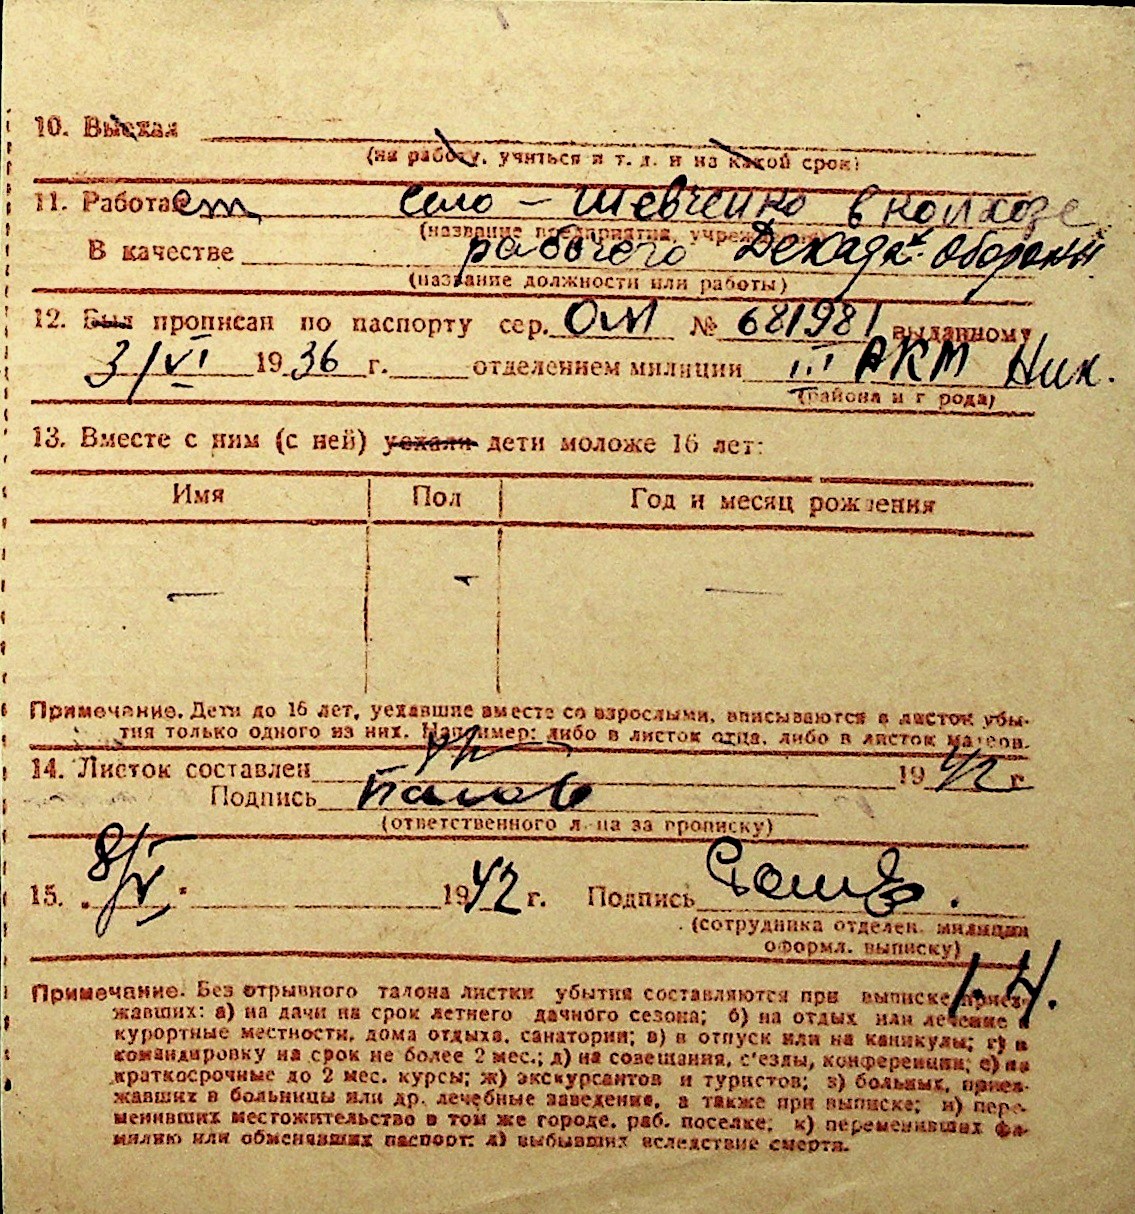 10. Выехал
(на работу, учиться и т. д. и на какой срок)
11. Работает село - Шевченко в колхозе
(название предприятия, учреждения)
В качестве рабочего Декада Обороны
(название должности или работы)
12. Был прописан по паспорту сер. ОМ № 681981 выданному
3/VI 1936 г. отделением милиции III РКМ Ник.
(района и города)
13. Вместе с ним (с ней) уехали дети моложе 16 лет:
Имя Пол Год и месяц рождения
— — —
Примечание. Дети до 16 лет, уехавшие вместе со взрослыми, вписываются в листок убы-
тия только одного из них. Например: либо в листок отца, либо в листок матери.
14. Листок составлен 1942 г
Подпись
(ответственного лица за прописку)
15. 8/V 1942 г. Подпись
(сотрудника отделен. милиции
оформл. выписку)
Примечание. Без отрывного талона листки убытия составляются при выписке приез-
жавших: а) на дачи на срок летнего дачного сезона; б) на отдых или лечение в
курортные местности, дома отдыха, санатории; в) в отпуск или на каникулы; г) в
командировку на срок не более 2 мес.; д) на совещания, с'езды, конференции; е) на
краткосрочные до 2 мес. курсы; ж) экскурсантов и туристов; з) больных, приез-
жавших в больницы или др. лечебные заведения, а также при выписке; и) пере-
менивших местожительство в том же городе, раб. поселке; к) переменивших фа-
милию или обменявших паспорт; л) выбывших вследствие смерти.